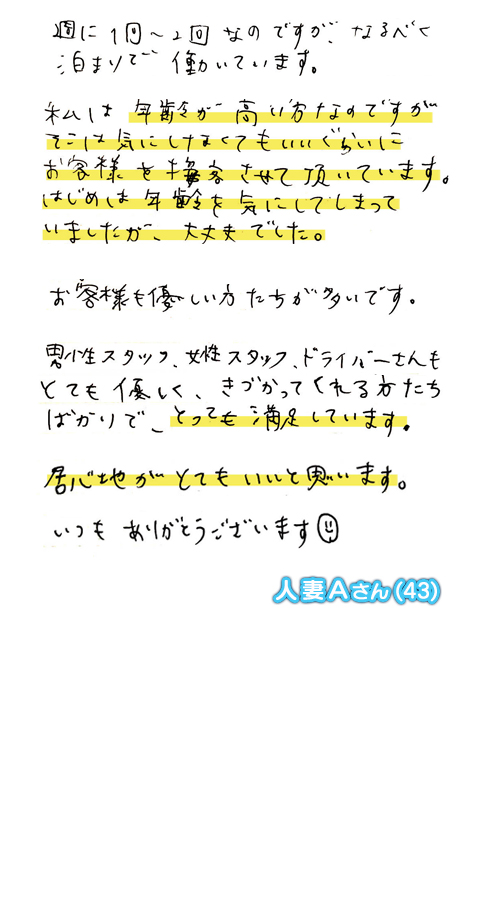 週に1回～2回なのですが、なるべく
泊まりで働いています。
私は年齢が高い方なのですが
そこは気にしなくてもいいぐらいに
お客様を接客させて頂いています。
はじめは年齢を気にしてしまって
いましたが、大丈夫でした。
お客様も優しい方たちが多いです。
男性スタッフ、女性スタッフ、ドライバーさんも
とても優しく、きづかってくれる方たち
ばかりで、とっても満足しています。
居心地がとてもいいと思います。
いつもありがとうございます
人妻Aさん(43)